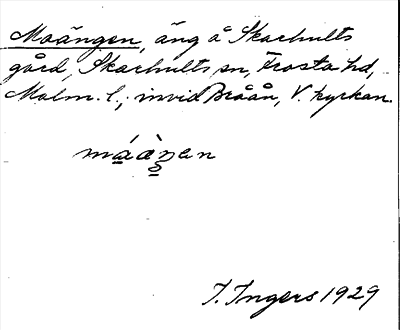 Moängen, äng å Skarhults
gård, Skarhults sn, Frosta hd,
Malm. l., invid Bråån, V. kyrkan.
I. Ingers 1929